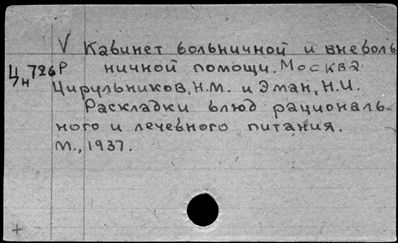 V Кабинет больничной и внеболь
Цн 726 Р ничной помощи. Москва.
Цирульников, Н.М. и Эман, Н.И.
Раскладки блюд рациональ-
ного и лечебного питания.
М., 1937.
+